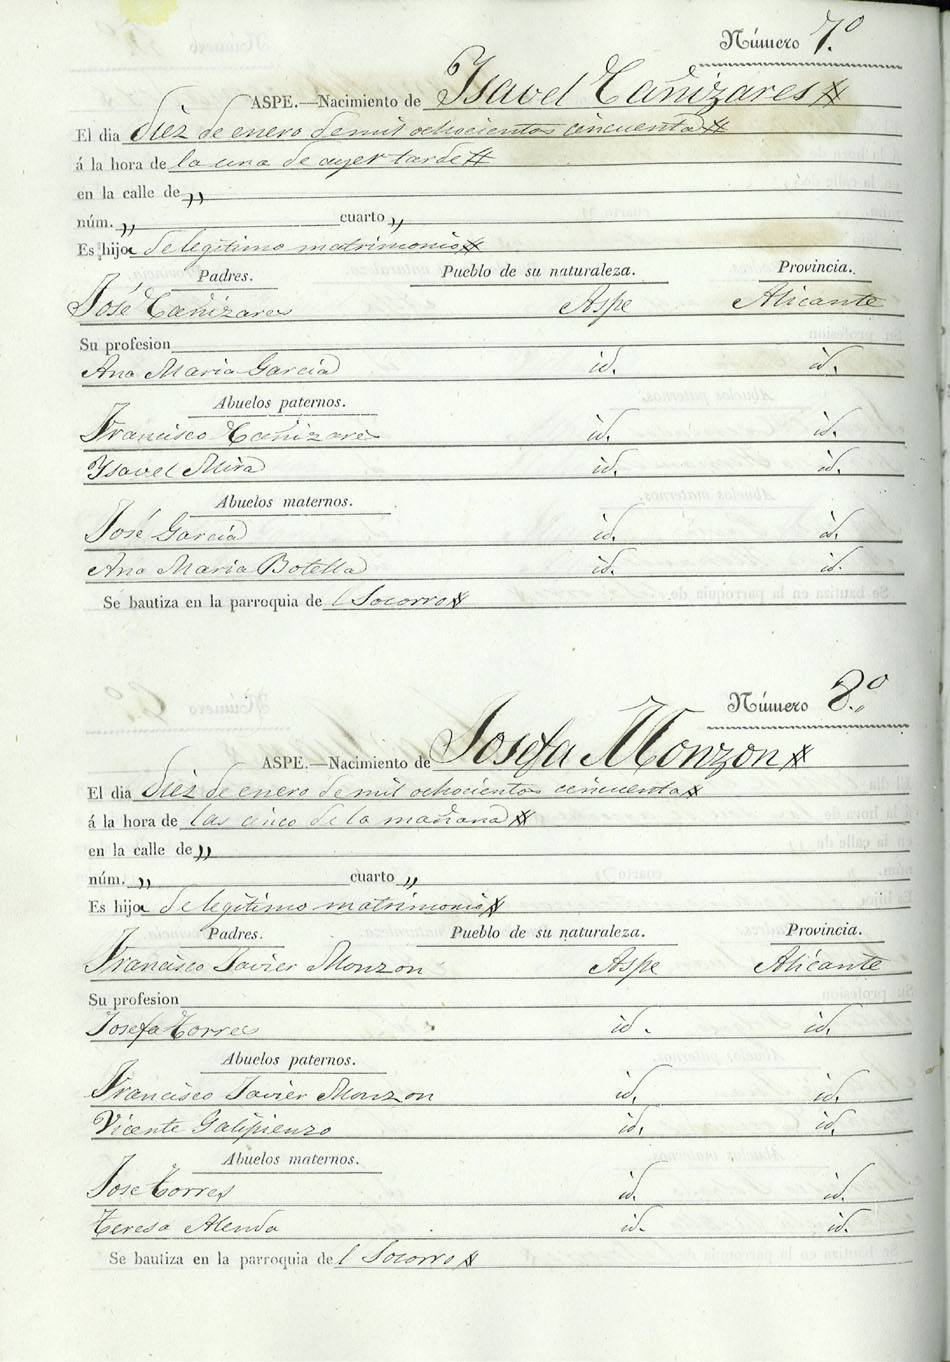 Número 7.º
ASPE.—Nacimiento de Ysavel Cañizares
El dia diez de enero de mil ochocientos cincuenta
á la hora de la una de ayer tarde
en la calle de ,,
núm. ,, cuarto ,,
Es hija de legitimo matrimonio
Padres. Pueblo de su naturaleza. Provincia.
José Cañizares Aspe Alicante
Su profesion
Ana Maria Garcia id. id.
Abuelos paternos.
Francisco Cañizares id. id.
Ysavel Mira id. id.
Abuelos maternos.
José Garcia id. id.
Ana Maria Botella id. id.
Se bautiza en la parroquia del Socorro
Número 8.º
ASPE.—Nacimiento de Josefa Monzon
El dia diez de enero de mil ochocientos cincuenta
á la hora de las cinco de la mañana
en la calle de ,,
núm. ,, cuarto ,,
Es hija de legitimo matrimonio
Padres. Pueblo de su naturaleza. Provincia.
Francisco Javier Monzon Aspe Alicante
Su profesion
Josefa Torres id. id.
Abuelos paternos.
Francisco Javier Monzon id. id.
Vicente Galipienzo id. id.
Abuelos maternos.
Jose Torres id. id.
Teresa Alenda id. id.
Se bautiza en la parroquia del Socorro